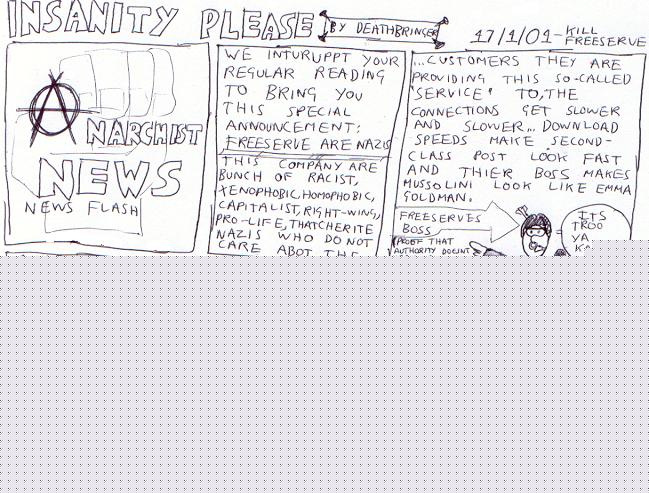 INSANITY PLEASE
BY DEATHBRINGER
17/1/01-KILL
FREESERVE
ANARCHIST
NEWS
NEWS FLASH
WE INTURUPPT YOUR
REGULAR READING
TO BRING YOU
THIS SPECIAL
ANNOUNCEMENT:
FREESERVE ARE NAZIS
THIS COMPANY ARE
BUNCH OF RACIST,
XENOPHOBIC, HOMOPHOBIC,
CAPITALIST, RIGHT-WING,
PRO-LIFE, THATCHERITE
NAZIS WHO DO NOT
CARE ABOT THE
...CUSTOMERS THEY ARE
PROVIDING THIS SO-CALLED
'SERVICE' TO, THE
CONNECTIONS GET SLOWER
AND SLOWER... DOWNLOAD
SPEEDS MAKE SECOND-
CLASS POST LOOK FAST
AND THIER BOSS MAKES
MUSSOLINI LOOK LIKE EMMA
GOLDMAN.
FREESERVES
BOSS
PROOF THAT
AUTHORITY
ITS
TROO
YA